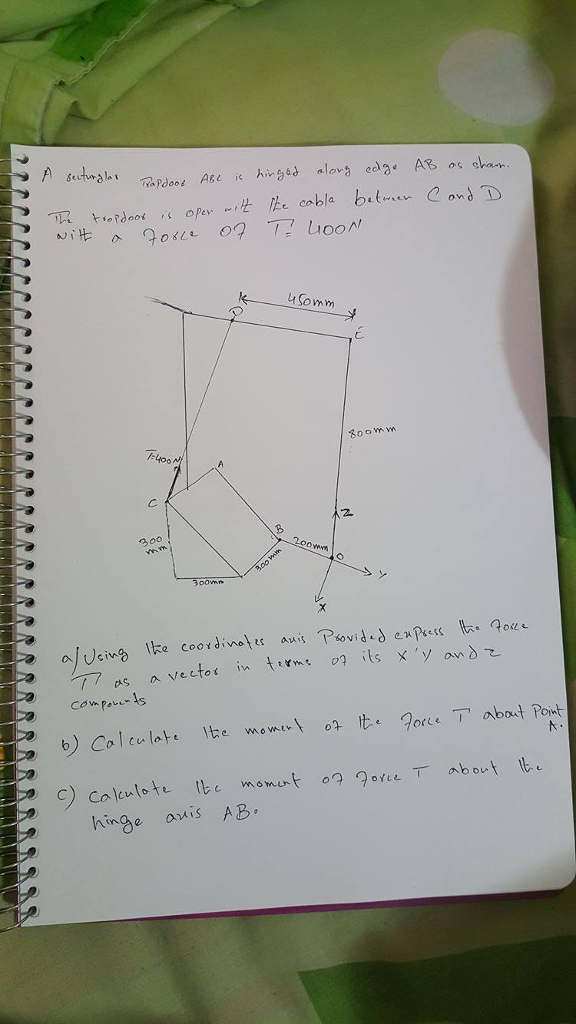 A rectangular Trapdoor ABC is hinged along edge AB as shown.
The tropdoor is open with the cable between C and D
with a Force of T= 400N
450mm
D
E
800mm
T=400N
A
C
Z
B
300
mm
200mm
O
300mm
300mm
Y
X
a) Using the coordinates axis Provided express the Force
T as a vector in terms of its x'y and z
components
b) Calculate the moment of the Force T about Point
A.
c) Calculate the moment of Force T about the
hinge axis AB.